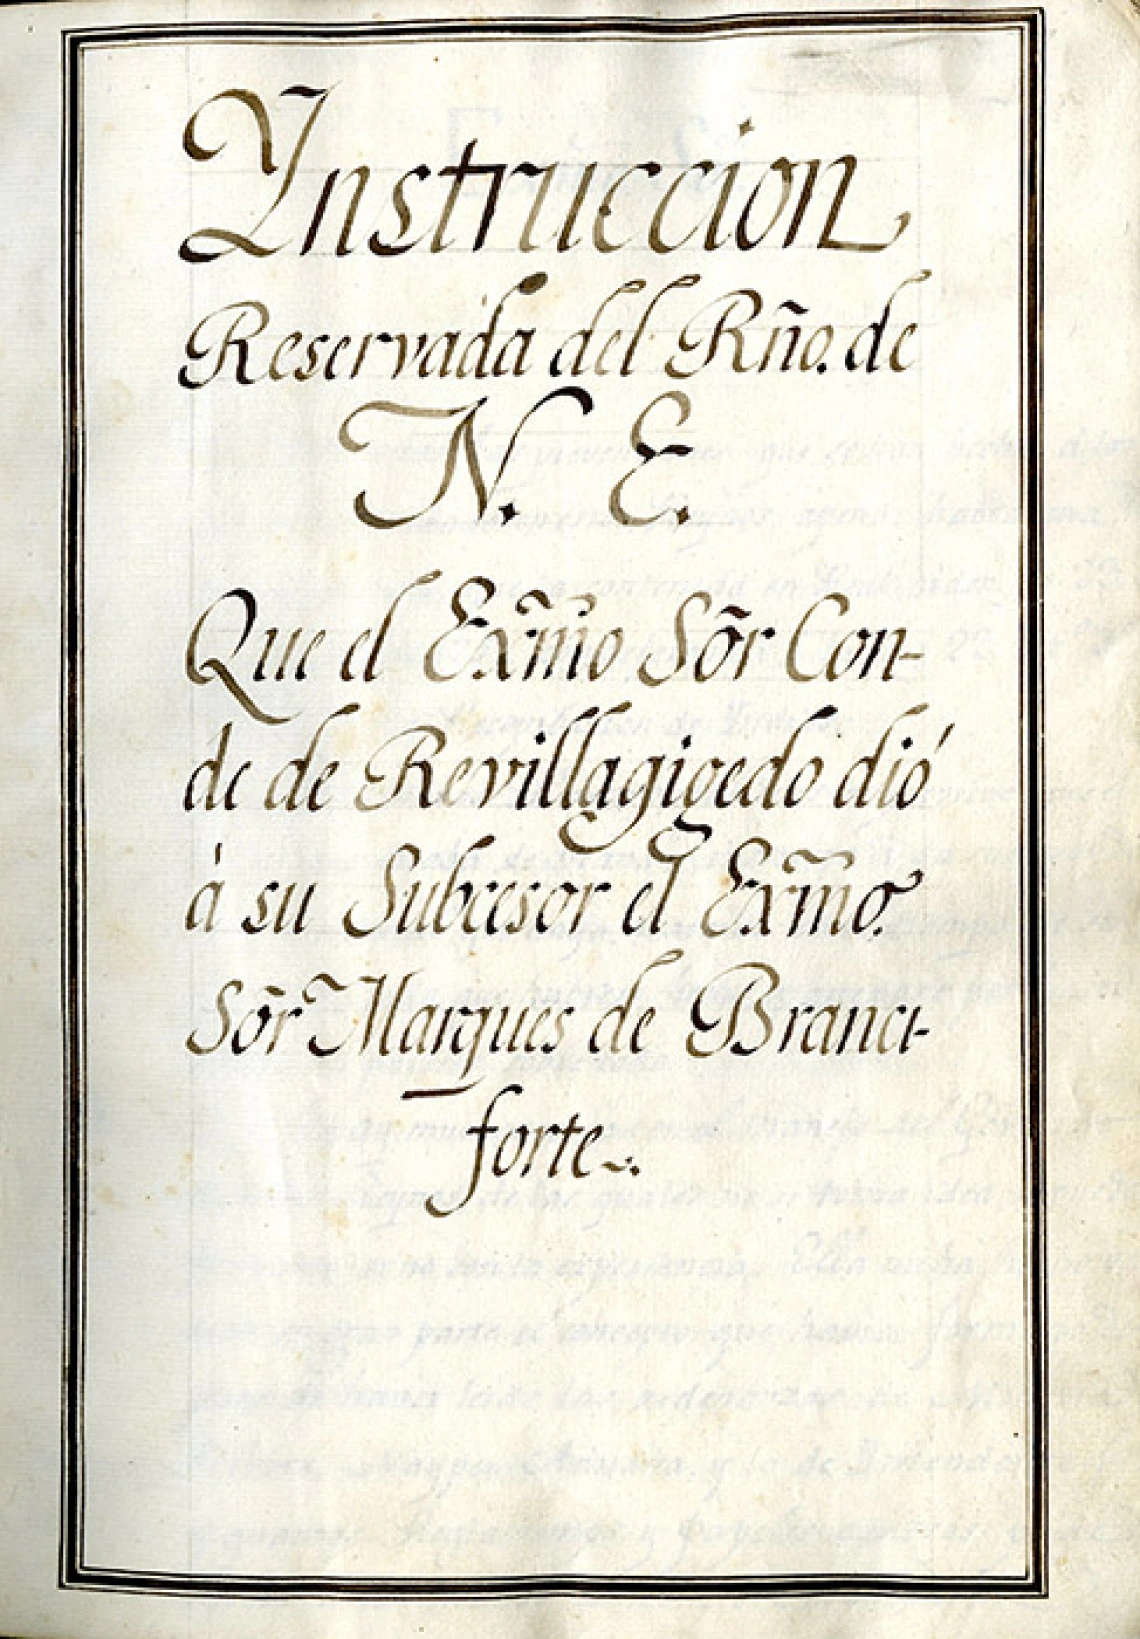 Ynstruccion
Reservada del Rño. de
N. E.
Que el Exm̃o Sõr Con-
de de Revillagigedo dió
à su Subcesor el Exm̃o.
Sõr Marques de Branci-
forte